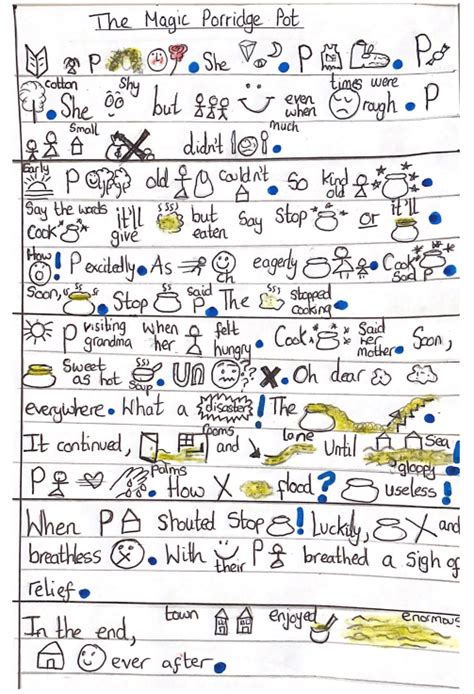 The Magic Porridge Pot
P . She P . P
cotton . She shy but even when times were rough. P
small didn't much .
Early P old couldn't . So kind old .
Say the words Cook it'll give but eaten say Stop or it'll .
How! P excitedly. As eagerly . Cook said P.
Soon, . Stop said P. The stopped cooking.
P visiting grandma when her felt hungry. Cook said her mother. Soon,
Sweet as hot soup. Un ? . Oh dear
everywhere. What a disaster! The
It continued, rooms and lane Until sea gloopy !
P palms . How X flood? useless!
When P shouted Stop ! Luckily, X and
breathless . With their P breathed a sigh of
relief.
In the end, town enjoyed enormous
ever after.